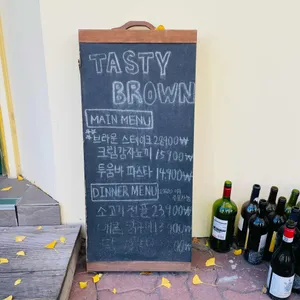 TASTY
BROWN
MAIN MENU
브라운 스테이크 28900₩
크림감자뇨끼 15,900₩
투움바 파스타 14,900₩
DINNER MENU
소고기전골 23,900₩
900₩